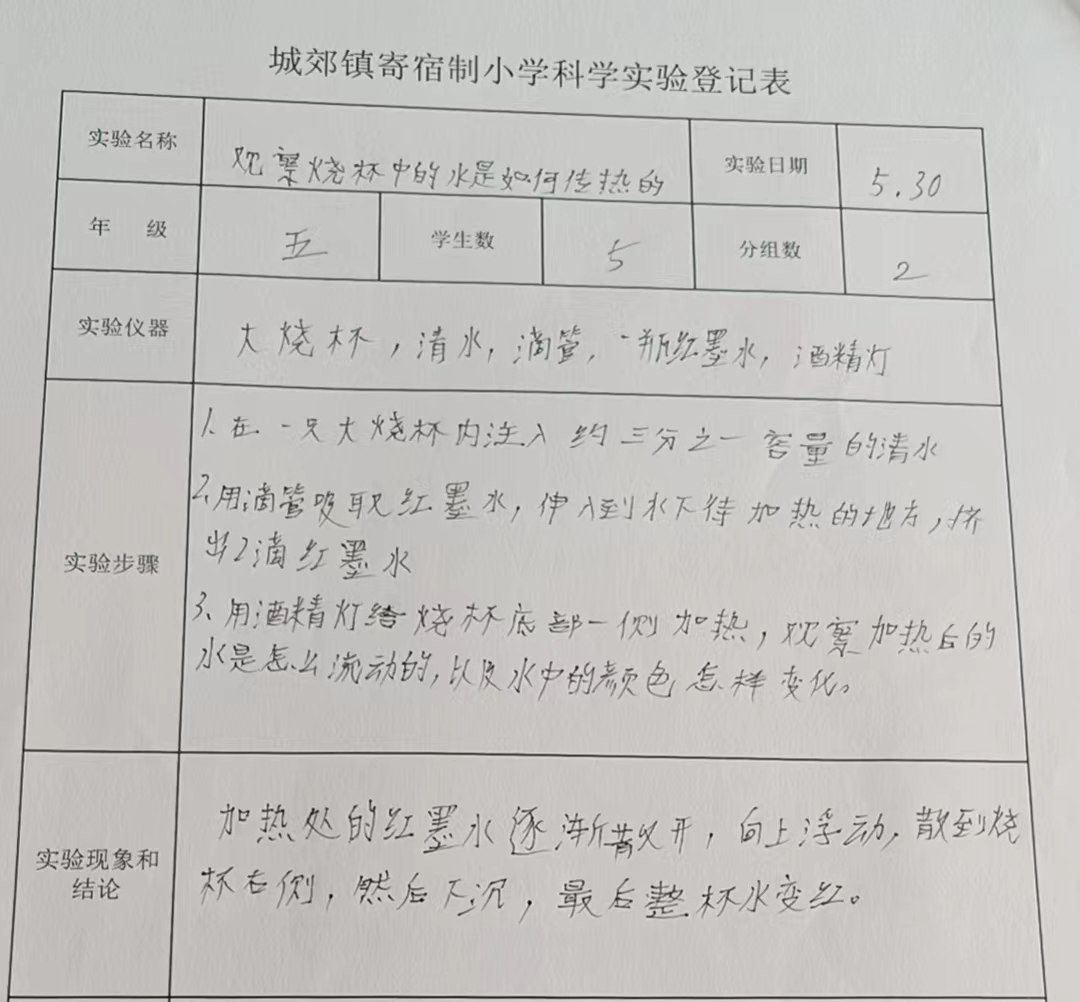 城郊镇寄宿制小学科学实验登记表
实验名称 观察烧杯中的水是如何传热的 实验日期 5.30
年 级 五 学生数 5 分组数 2
实验仪器 大烧杯，清水，滴管，一瓶红墨水，酒精灯
实验步骤
1.在一只大烧杯内注入约三分之一容量的清水
2.用滴管吸取红墨水，伸入到水下待加热的地方，挤
出2滴红墨水
3.用酒精灯给烧杯底部一侧加热，观察加热后的
水是怎么流动的，以及水中的颜色怎样变化。
实验现象和
结论
加热处的红墨水逐渐散开，向上浮动，散到烧
杯右侧，然后下沉，最后整杯水变红。